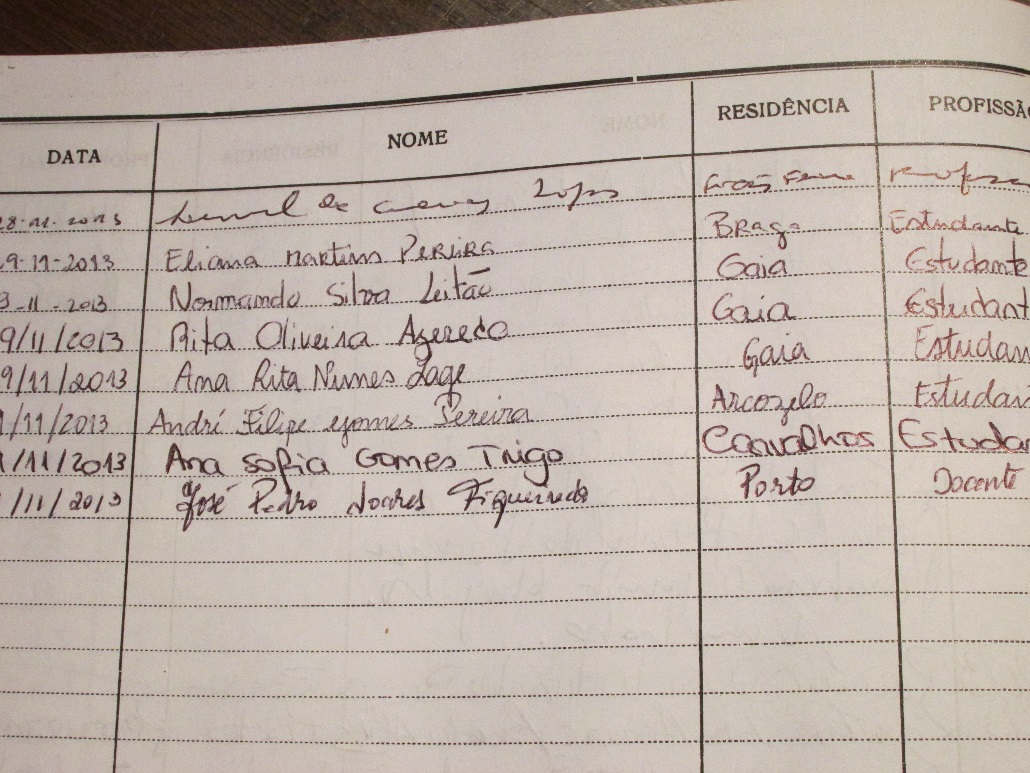 DATA NOME RESIDÊNCIA PROFISSÃO
28-11-2013 de
9-11-2013 Eliana Martins Pereira Braga Estudante
3-11-2013 Normando Silva Leitão Gaia Estudante
9/11/2013 Rita Oliveira Azeredo Gaia Estudant
9/11/2013 Ana Rita Nunes Lage Gaia Estudan
/11/2013 André Filipe gomes Pereira Arcozelo Estudan
/11/2013 Ana Sofia Gomes Trigo Carvalhos Estudan
/11/2013 José Pedro Soares Figueiredo Porto Docente